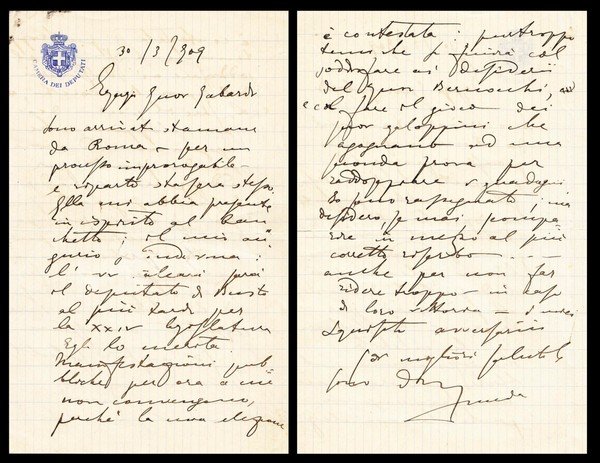 CAMERA DEI DEPUTATI
30/3/909
Egregio Signor Gabardi
Sono arrivato stamane
da Roma per un
processo improrogabile
e riparto stasera stessa.
Ella mi abbia presente
in ispirito al ban
chetto; il mio au
gurio,
l'
il deputato di Busto
al più tardi per
la XXIV legislatura
Egli lo merita.
Manifestazioni pub
bliche per ora a me
non convengono,
perchè la mia elezione
è contestata: purtroppo
temo che si finirà col
soddisfare ai desiderii
del Signor Bernocchi,
e col fare il gioco dei
signor galoppini che
agognano ad una
seconda prova per
raddoppiare i guadagni
Io sono rassegnato; ma
desidero, se mai,
in mezzo al più
corretto riserbo
anche per non far
ridere troppo in caso
di loro vittoria i miei
squisiti avversarii
Coi migliori saluti
suo